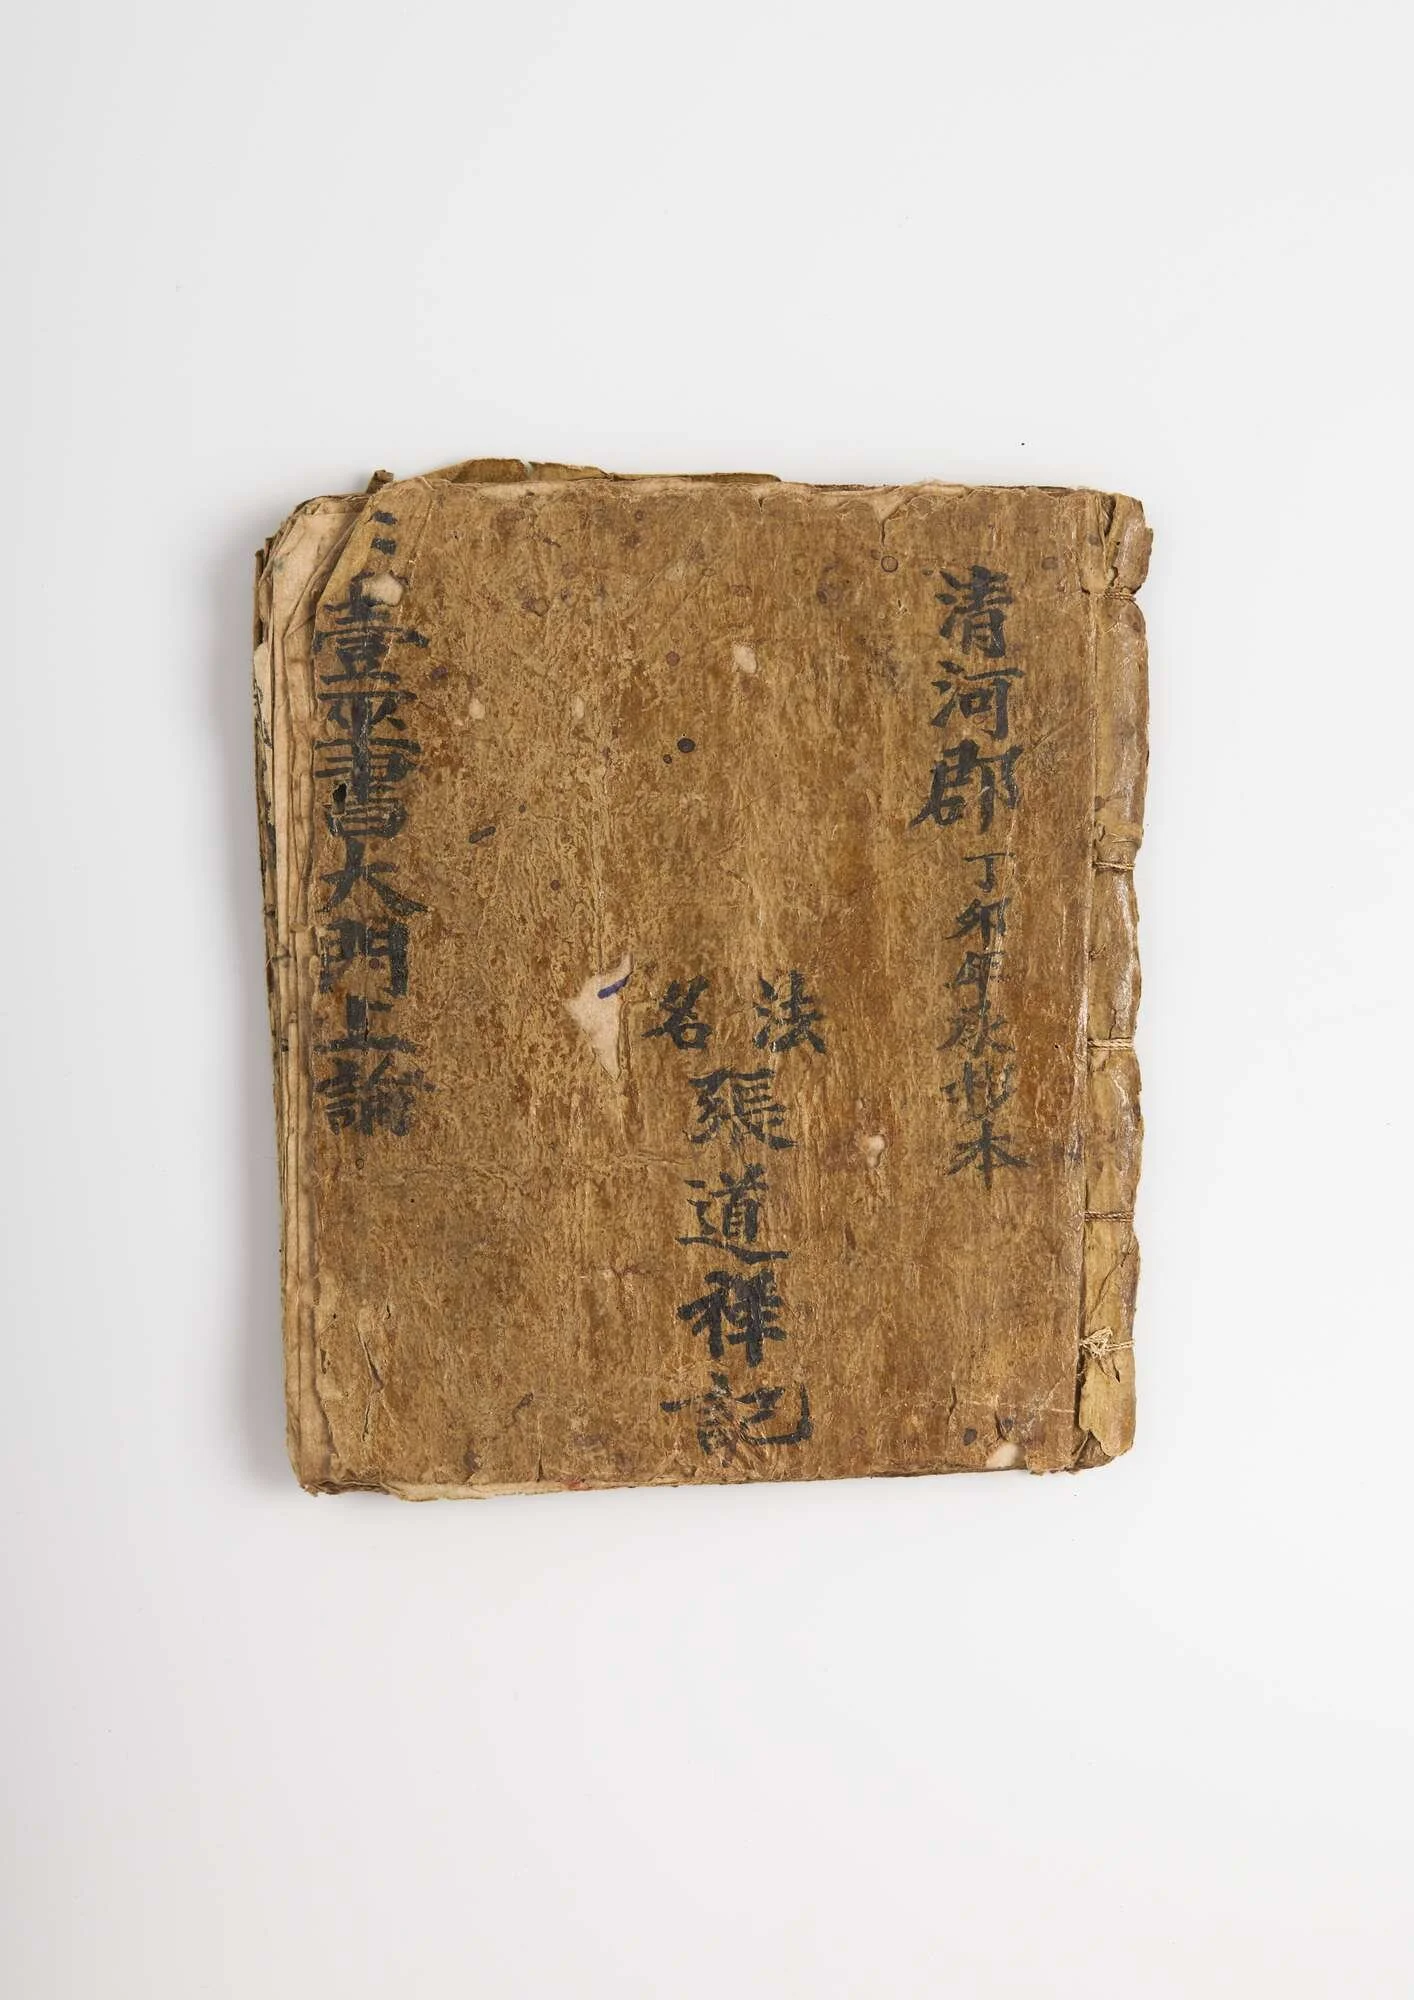 清河郡 丁卯年 抄本
法名
張道禪記
壹 書大門上論